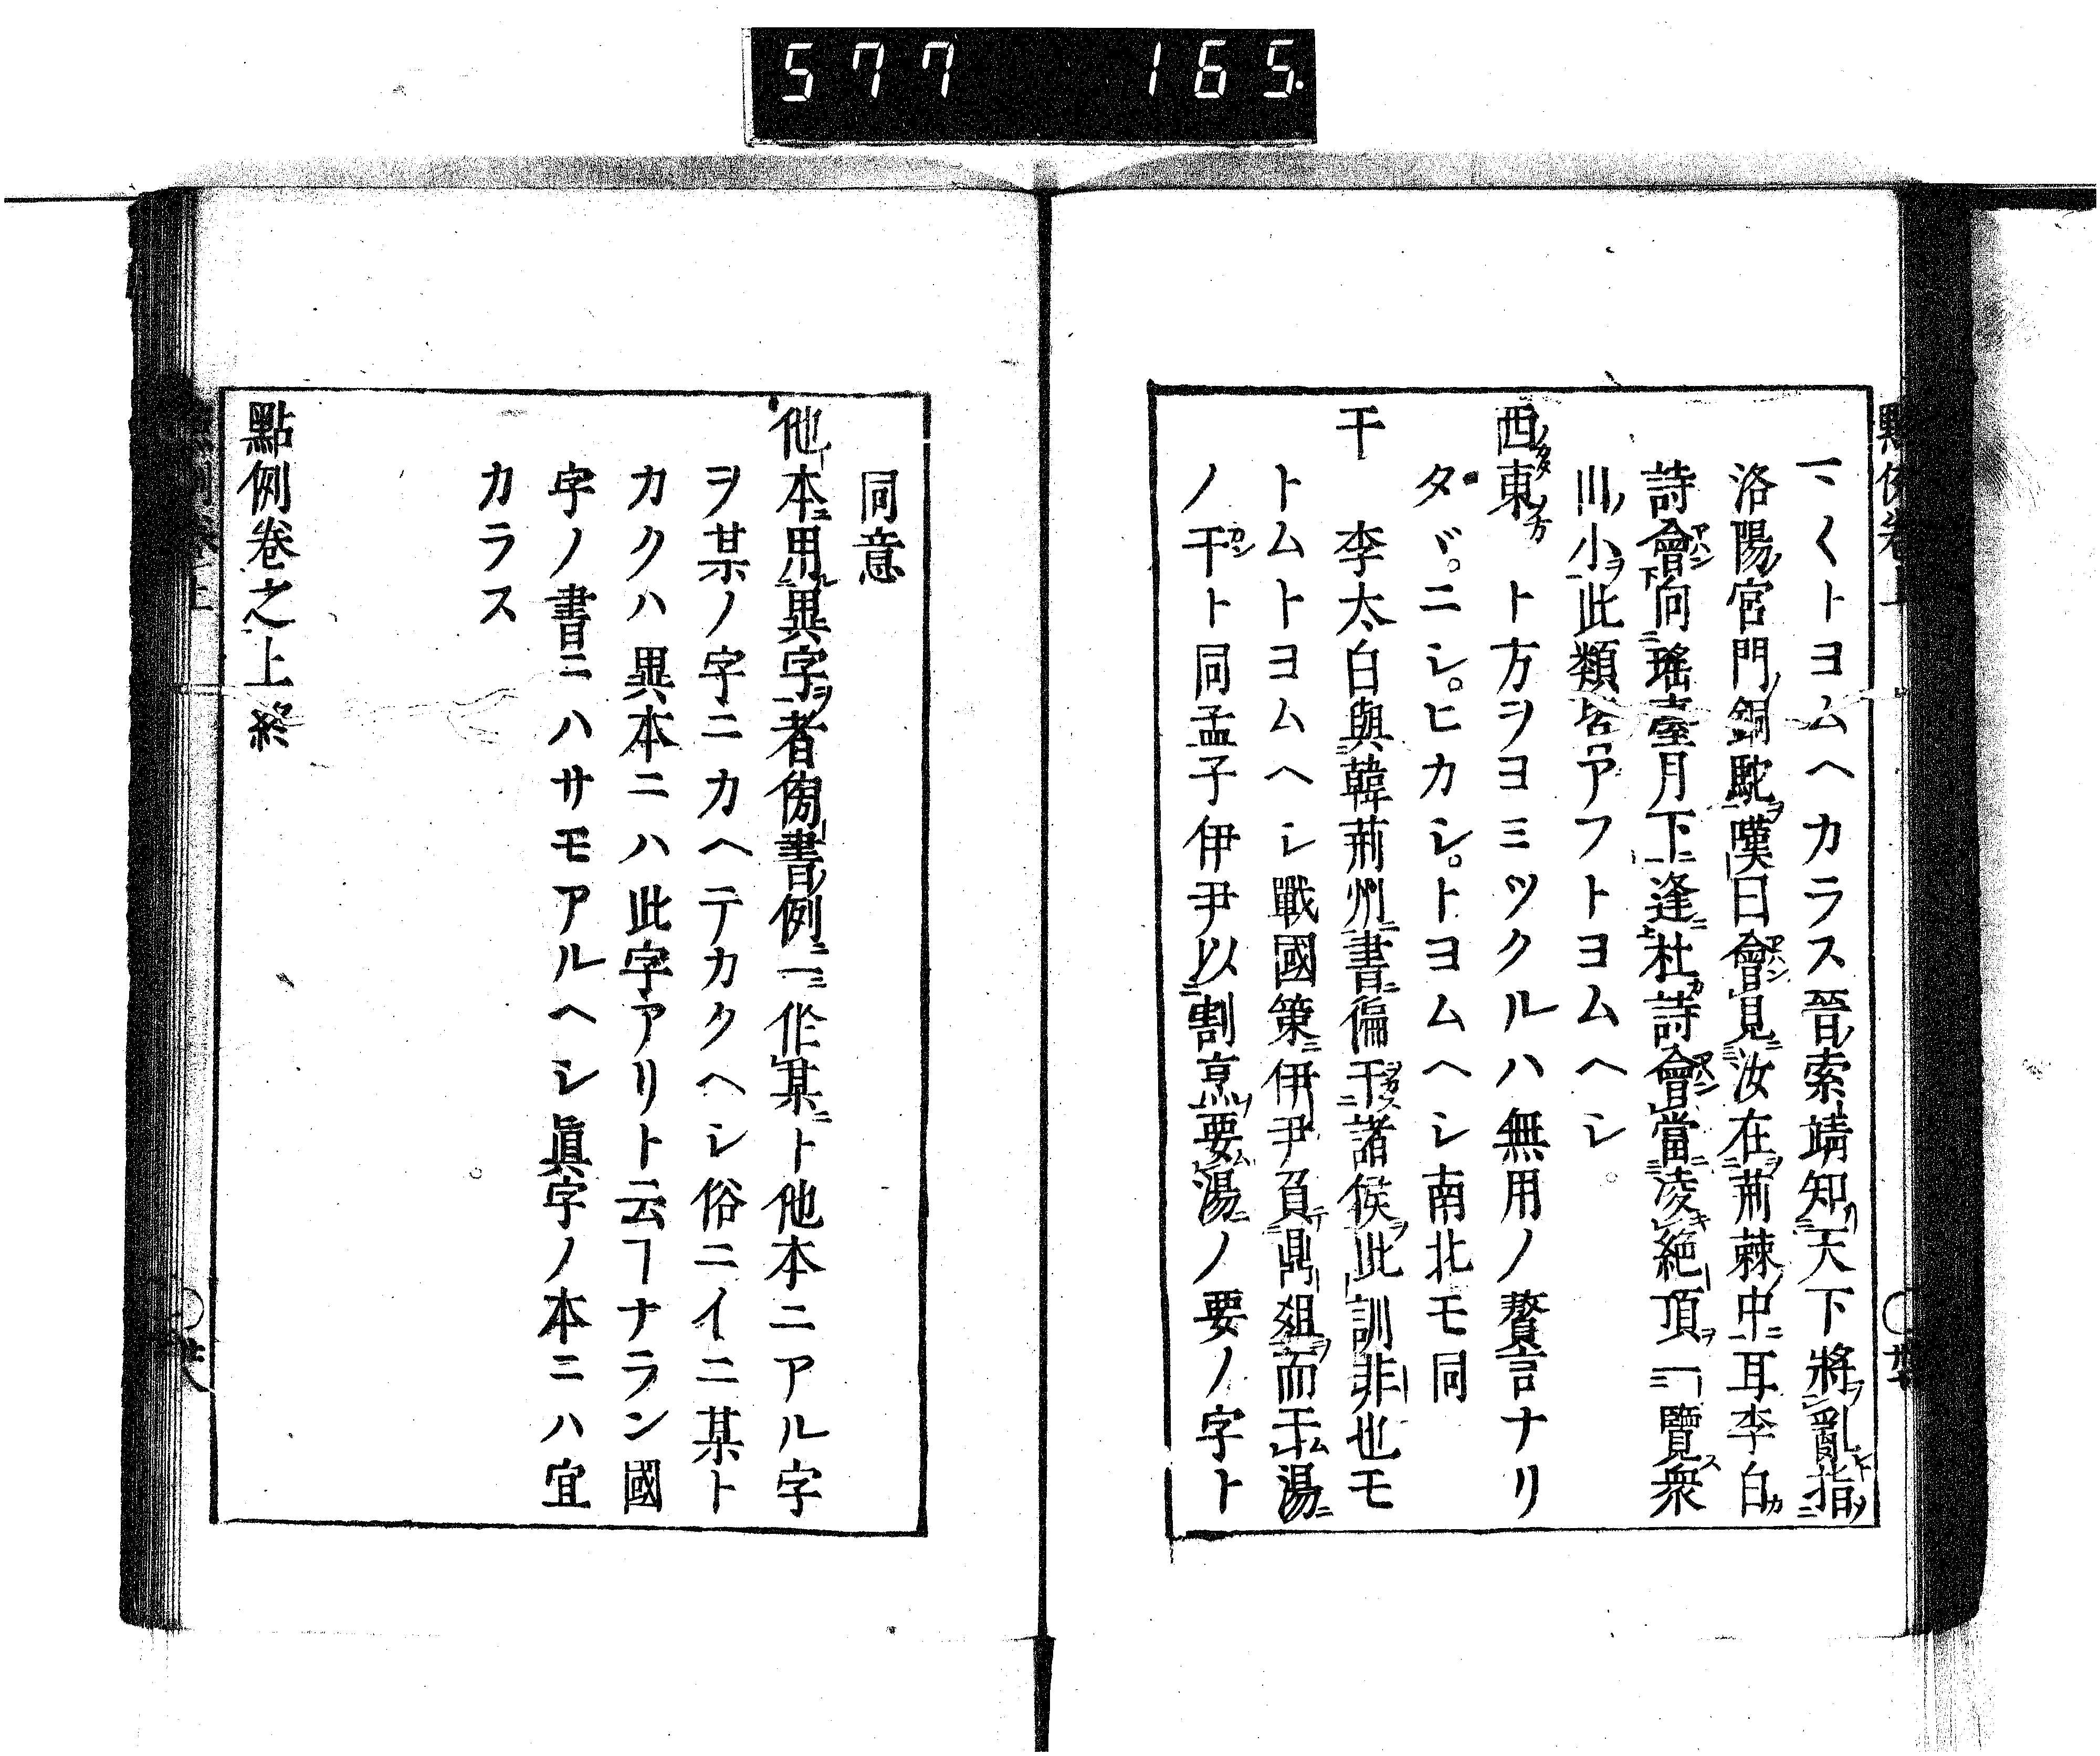 577 165.
一〻くトヨムヘカラス晉索靖知天下將亂指
洛陽宮門銅駝嘆曰會見汝在荊棘中耳李白
詩會向瑤臺月下逢杜詩會當凌絶頂一覽衆
川小此類皆アフトヨムヘシ
西東 ト方ヲヨミツクルハ無用ノ贅言ナリ
タヾニシヒカシトヨムヘシ南北モ同
干 李太白與韓荊州書徧干諸侯此訓非也モ
トムトヨムヘシ戰國策伊尹負鼎爼而干湯
ノ干ト同孟子伊尹以割烹要湯ノ要ノ字ト
同意
他本用異字者傍書例 一作某ト他本ニアル字
ヲ某ノ字ニカヘテカクヘシ俗ニイニ某ト
カクハ異本ニハ此字アリト云ヿナラン國
字ノ書ニハサモアルヘシ眞字ノ本ニハ宜
カラス
點例卷之上終